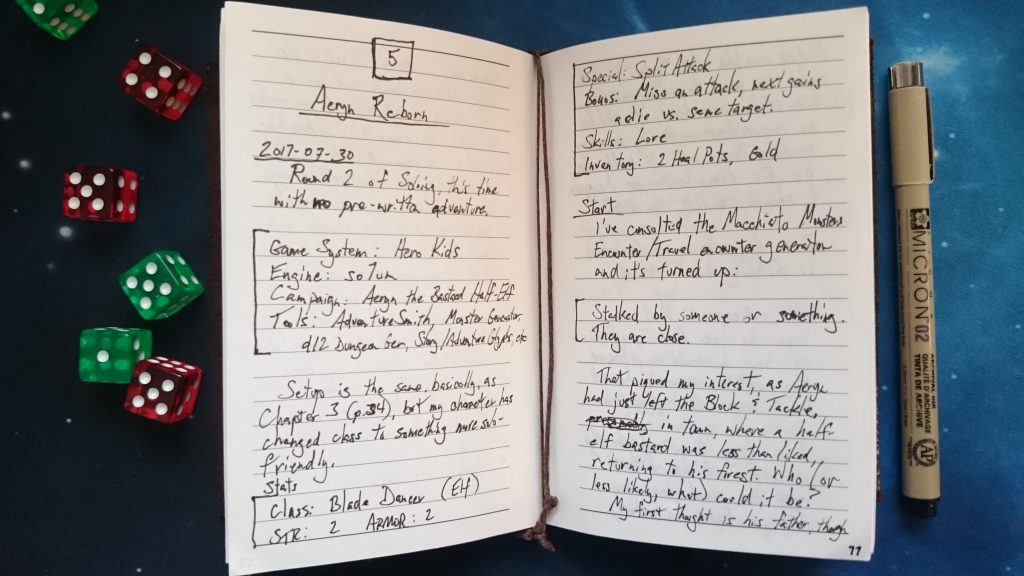 5
Aeryn Reborn
2017-07-30
Round 2 of Soloing, this time
with no pre-written adventure.
Game System: Hero Kids
Engine: so1um
Campaign: Aeryn the Bastard Half-Elf
Tools: AdventureSmith, Monster Generator,
d12 Dungeon Gen, Story/Adventure Glyphs, etc
Setup is the same, basically, as
Chapter 3 (p.34), but my character has
changed class to something more
friendly.
Stats
Class: Blade Dancer (Elf)
STR: 2 ARMOR: 2
Special: Split Attack
Bonus: Miss an attack, next gains
a die vs. same target.
Skills: Lore
Inventory: 2 Heal Pots, Gold
Start
I've consulted the Macchiato Monsters
Encounter/Travel encounter generator
and it's turned up:
Stalked by someone or something.
They are close.
That piqued my interest, as Aeryn
had just left the Block & Tackle,
in town where a half-
elf bastard was less than liked,
returning to his forest. Who (or
less likely, what) could it be?
My first thought is his father, though
77
MICRON 02
ARCHIVAL INK
QUALITÉ D'ARCHIVAGE
TINTA DE ARCHIVE